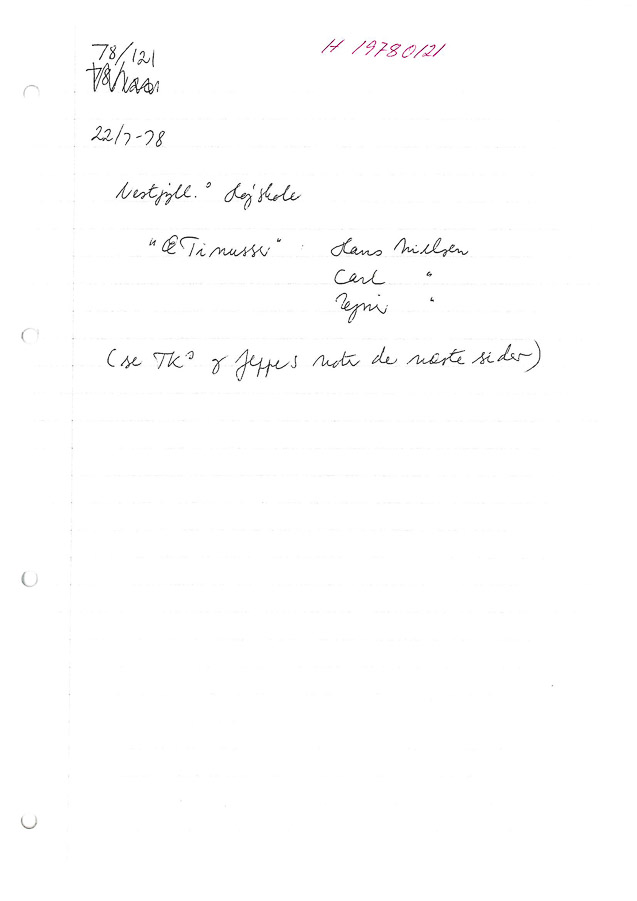 78/121
H 19780121
22/7-78
Vestjyll.° Højskole
"Æ Tinusser" Hans Nielsen
Carl "
"
(se TKs & Jeppes note de næste sider)